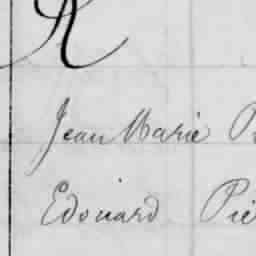 R
Jean Marie
Edouard